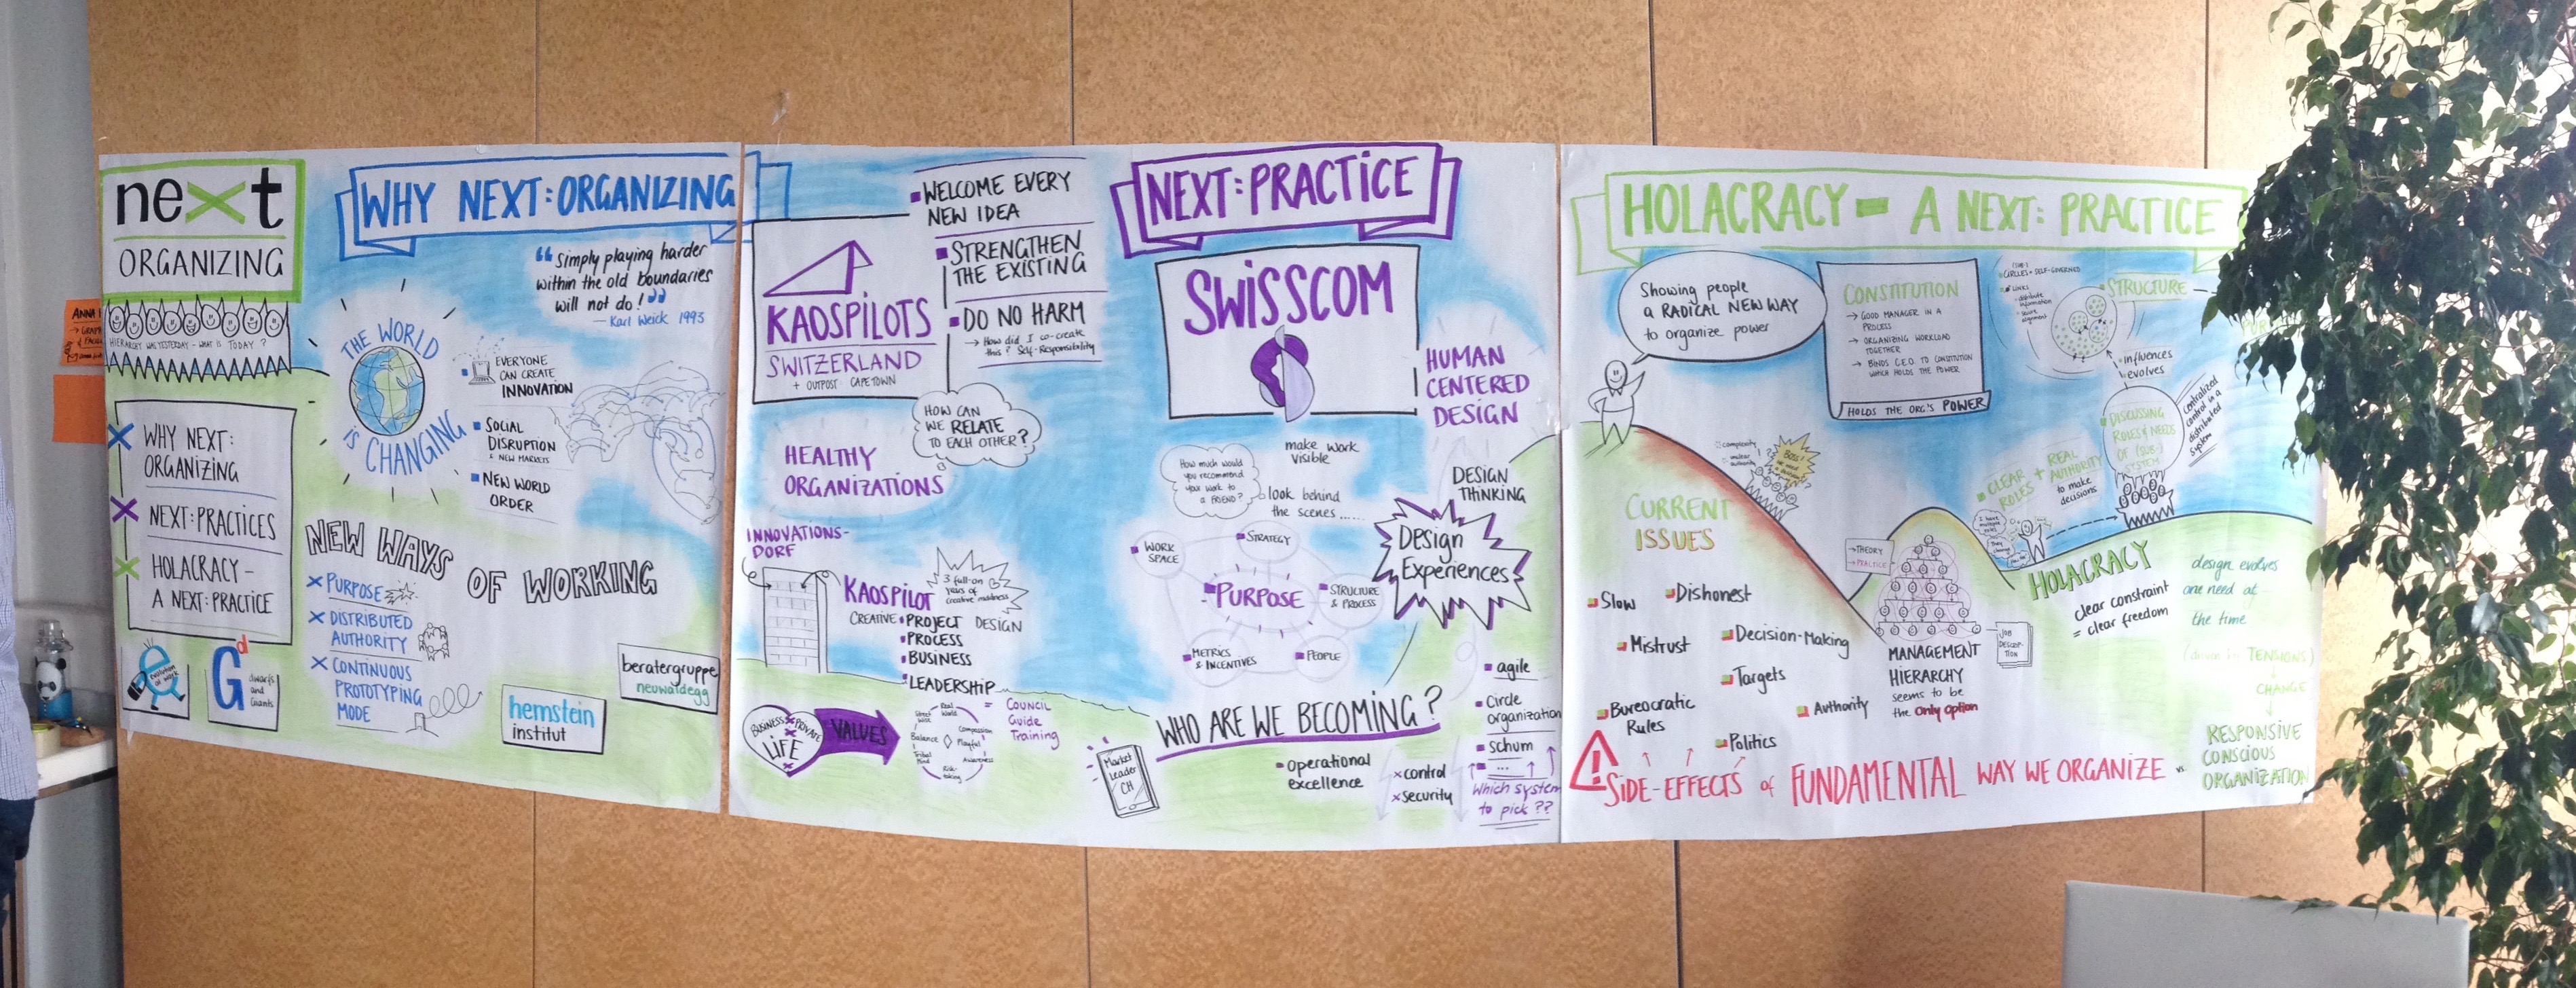 next
ORGANIZING
HIERARCHY WAS YESTERDAY - WHAT IS TODAY ?
WHY NEXT:
ORGANIZING
NEXT:PRACTICES
HOLACRACY -
A NEXT:PRACTICE
evolution
at work
Gd
dwarfs
and
Giants
WHY NEXT:ORGANIZING
“Simply playing harder
within the old boundaries
will not do!”
— Karl Weick 1993
THE WORLD
iS CHANGING
EVERYONE
CAN CREATE
INNOVATION
SOCIAL
DISRUPTION
& NEW MARKETS
NEW WORLD
ORDER
NEW WAYS
OF WORKING
PURPOSE
DISTRIBUTED
AUTHORITY
CONTINUOUS
PROTOTYPING
MODE
hemstein
institut
beratergruppe
neuwaldegg
KAOSPiLOTS
SWITZERLAND
+ OUTPOST CAPE TOWN
WELCOME EVERY
NEW IDEA
STRENGTHEN
THE EXISTING
DO NO HARM
→ How did I co-create
this? Self-Responsibility
HOW CAN
WE RELATE
TO EACH OTHER?
HEALTHY
ORGANIZATIONS
INNOVATIONS-
DORF
KAOSPILOT
3 full-on
years of
creative madness
CREATIVE PROJECT DESIGN
PROCESS
BUSINESS
LEADERSHIP
BUSINESS PRIVATE
LiFE
VALUES
Real
World
Street
Wise
Compassion
Balance
Playful
Awareness
Risk-
taking
= COUNCIL
Guide
Training
NEXT:PRACTiCE
SWiSSCOM
HUMAN
CENTERED
DESIGN
How much would
you recommend
your work to
a FRIEND?
make work
visible
look behind
the scenes......
DESIGN
THINKING
Design
Experiences
WORK
SPACE
STRATEGY
PURPOSE
STRUCTURE
& PROCESS
METRICS
& INCENTIVES
PEOPLE
WHO ARE WE BECOMING?
Market
Leader
CH
operational
excellence
x control
x security
agile
Circle
organization
schum
...
Which system
to pick ??
HOLACRACY - A NEXT: PRACTiCE
Showing people
a RADICAL NEW WAY
to organize power
CONSTITUTION
→ GOOD MANAGER IN A
PROCESS
→ ORGANIZING WORKLOAD
TOGETHER
→ BINDS C.E.O. TO CONSTITUTION
WHICH HOLDS THE POWER
HOLDS THE ORG'S POWER
CIRCLES = SELF-GOVERNED
LINKS
STRUCTURE
influences
evolves
DISCUSSING
ROLES & NEEDS
OF (SUB-)
SYSTEM
centralized
control in a
distributed
system
complexity
Boss!
CLEAR
ROLES + REAL
AUTHORITY
to make
decisions
CURRENT
ISSUES
Slow
Dishonest
Mistrust
Decision-Making
Targets
Bureocratic
Rules
Authority
Politics
→THEORY
→PRACTICE
JOB
DESCRIP-
TION
MANAGEMENT
HIERARCHY
seems to be
the Only Option
HOLACRACY
clear constraint
= clear freedom
design evolves
one need at
the time
(driven by TENSIONS)
CHANGE
RESPONSIVE
CONSCIOUS
ORGANIZATION
SiDE-EFFECTS of FUNDAMENTAL WAY WE ORGANIZE vs.